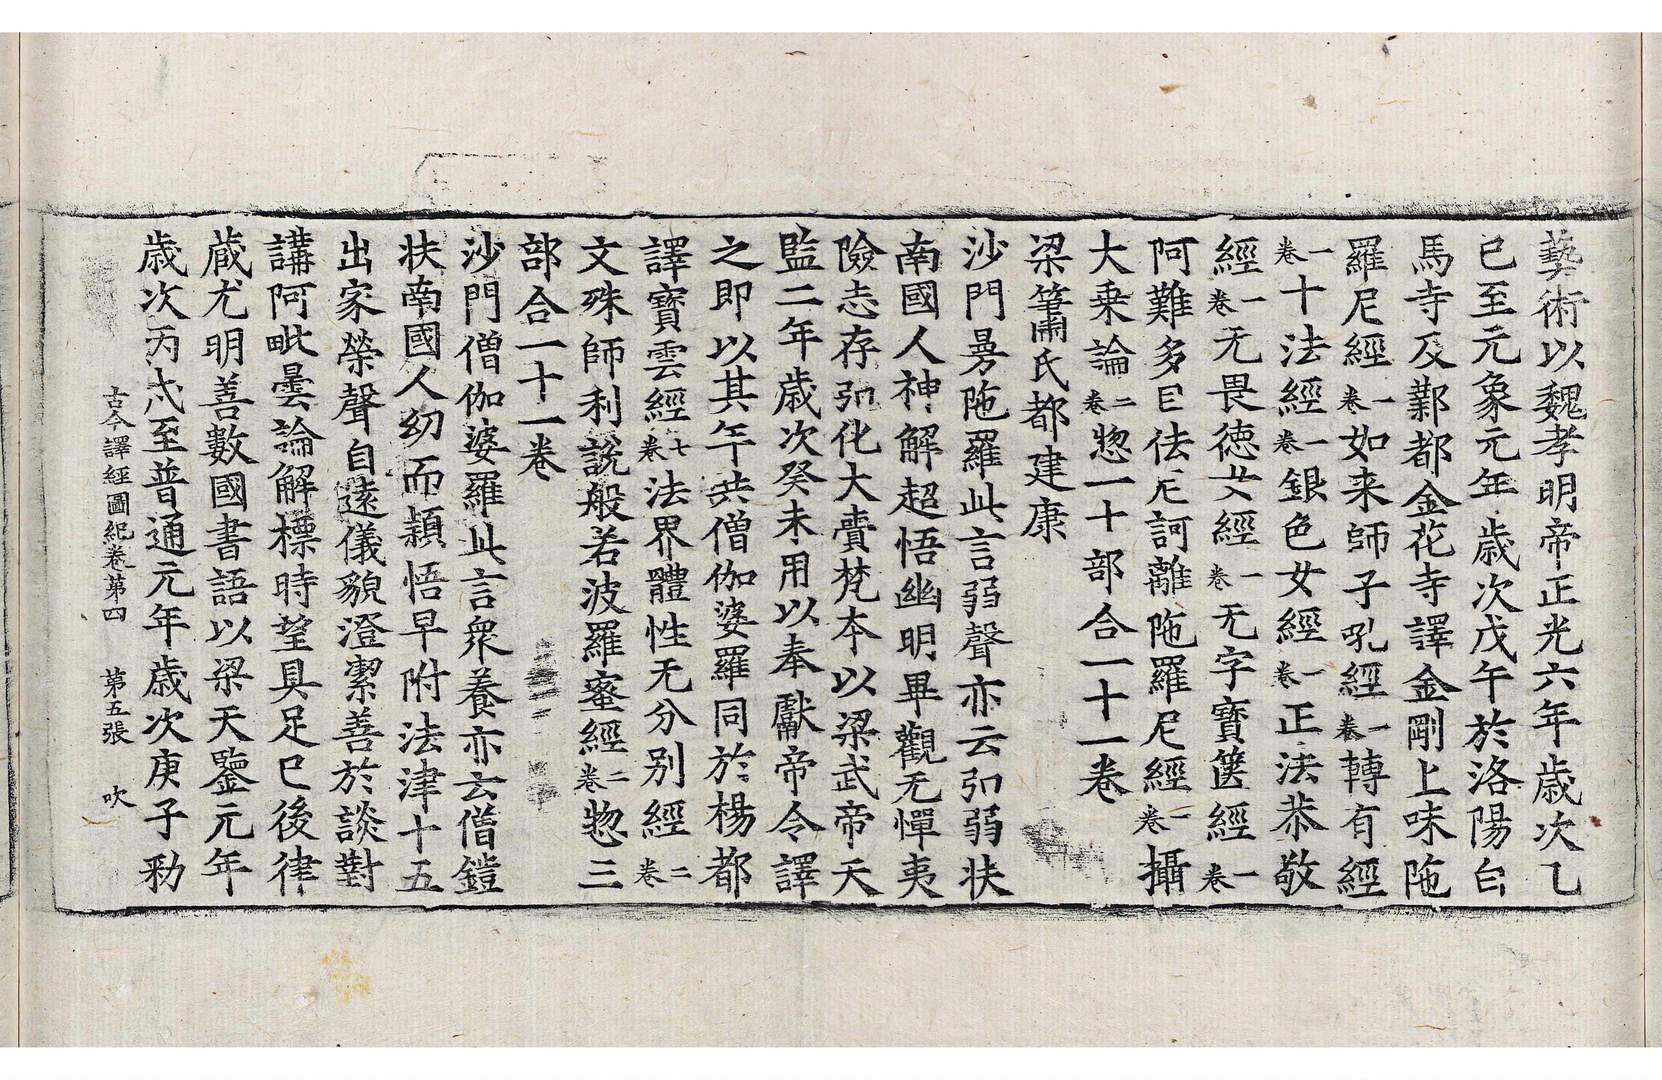 藝術以魏孝明帝正光六年歳次乙
巳至元象元年歳次戊午於洛陽白
馬寺及鄴都金花寺譯金剛上味陁
羅尼經一卷如来師子吼經一卷轉有經
一卷十法經一卷銀色女經一卷正法恭敬
經一卷无畏徳女經一卷无字寶篋經一卷
阿難多目佉尼訶離陁羅尼經一卷攝
大乗論二卷惣一十部合一十一卷
梁筆蕭氏都建康
沙門曼陁羅此言弱聲亦云弘弱扶
南國人神解超悟幽明畢觀无憚夷
險志存弘化大賷梵夲以梁武帝天
監二年歳次癸未用以奉獻帝令譯
之即以其年共僧伽婆羅同於楊都
譯寳雲經七卷法界體性无分别經二卷
文殊師利説般若波羅蜜經二卷惣三
部合一十一卷
沙門僧伽婆羅此言衆養亦云僧鎧
扶南國人㓜而頴悟早附法津十五
出家榮聲自遠儀貌澄潔善於談對
講阿毗曇論解標時望具足已後律
蔵尤明善數國書語以梁天鑒元年
歳次丙戌至普通元年歳次庚子勑
古今譯經圖紀卷第四 第五張 吹